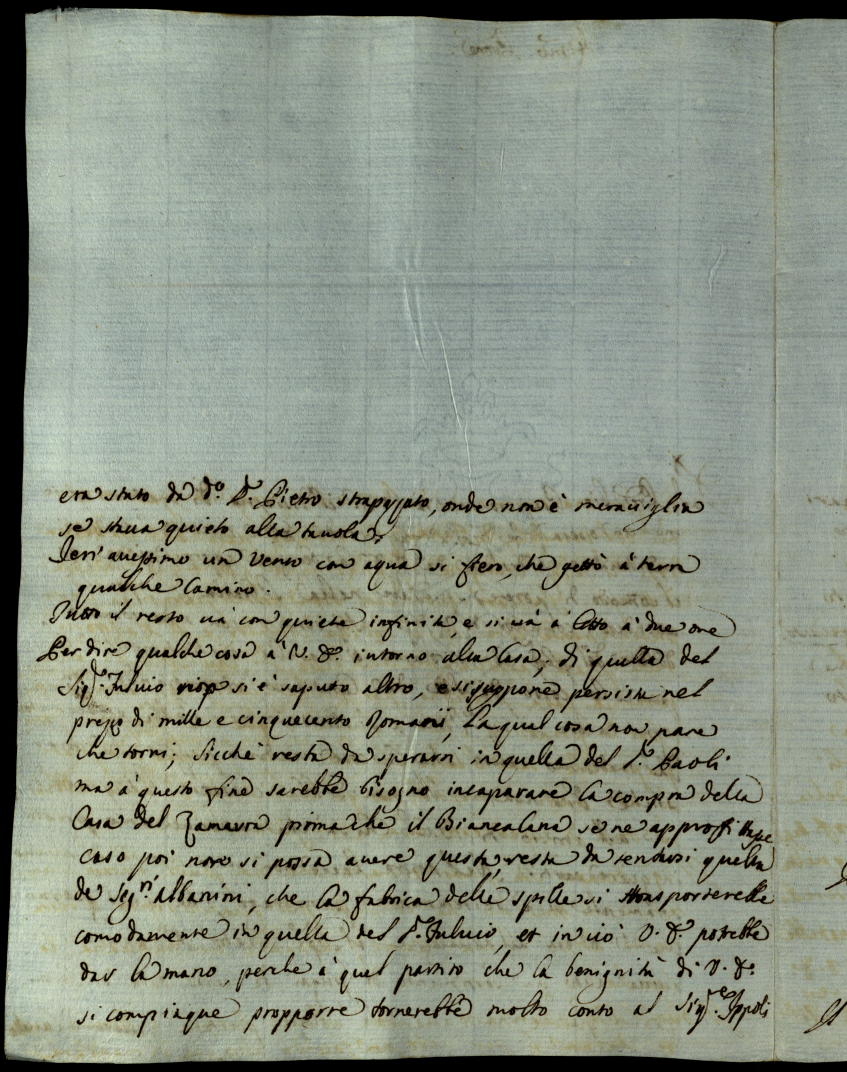 era stato da d.º D. Pietro strapazzato, onde non è meraviglia
se staua quieto alla tauola.
Ieri auessimo un Vento con aqua si fiero, che gettò à terra
qualche Camino.
Tutto il resto uà con quiete infinita, e si uà à letto à due ore
Per dire qualche cosa à V. S. intorno alla Casa, di quella del
Sig.r Fuluio non si è saputo altro, e si suppone persista nel
prezzo di mille e cinquecento Romani, la qual cosa non pare
che torni; sicchè resta da sperarsi in quella del S.r Paoli
ma à questo fine sarebbe bisogno incaparare la compra della
Casa del Zamaura prima che il Biancalana se ne approfittasse
caso poi non si possa auere questa, resta da tentarsi quella
de Sig.ri Albanini, che la fabrica delle spille si trasporterebbe
comodamente in quella del S.r Fuluio, et in ciò V. S. potrebbe
dar la mano, perche à quel partito che la benignità di V. S.
si compiaque propporre tornerebbe molto conto al Sig.re Ippoli